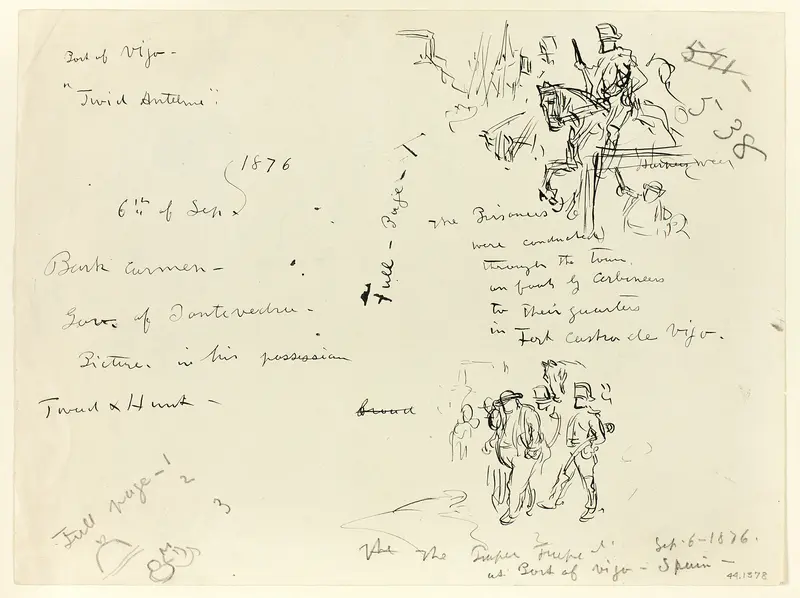 Port of Vigo -
"Twid Antelme".
1876
6th of Sep.
Bark Carmen -
Gov. of Pontevedra -
Picture. in his possession
Tweed & Hunt -
Full page - 1
2
3
Full - Page - 1
541-
5-38
The Prisoners
were conducted
through the town.
on foot by Carbineers
to their quarters
in Fort Castro de Vigo.
broad
The the Sep-6-1876.
at Port of Vigo - Spain -
44.1578